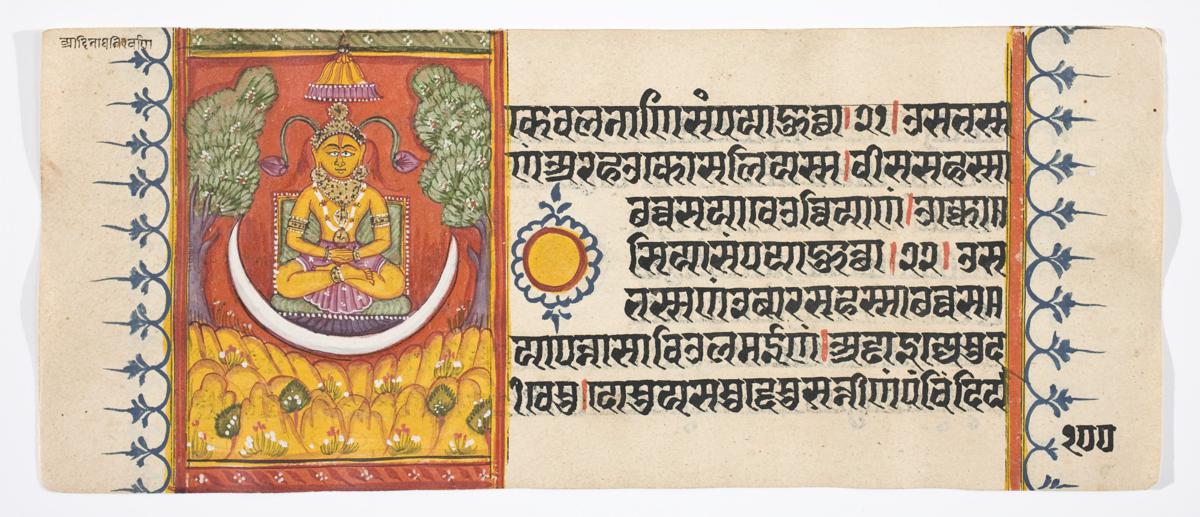 आदिनाथनिर्वाण
केवलनाणिसंपयाहुत्था।२१।उसभस्स
णंअरहउकोसलियस्स।वीससहस्सा
छच्चसयावेउव्वियाणं।उक्को॥
सियासंपयाहुत्था।२२।उस
भस्सणंबारससहस्साछच्चस॥
यापन्नासाविउलमईणं।अड्ढाइज्जेसुद
ीवेसु।दोसुयसमुद्देसुसन्नीणंपंचिंदिय
१००